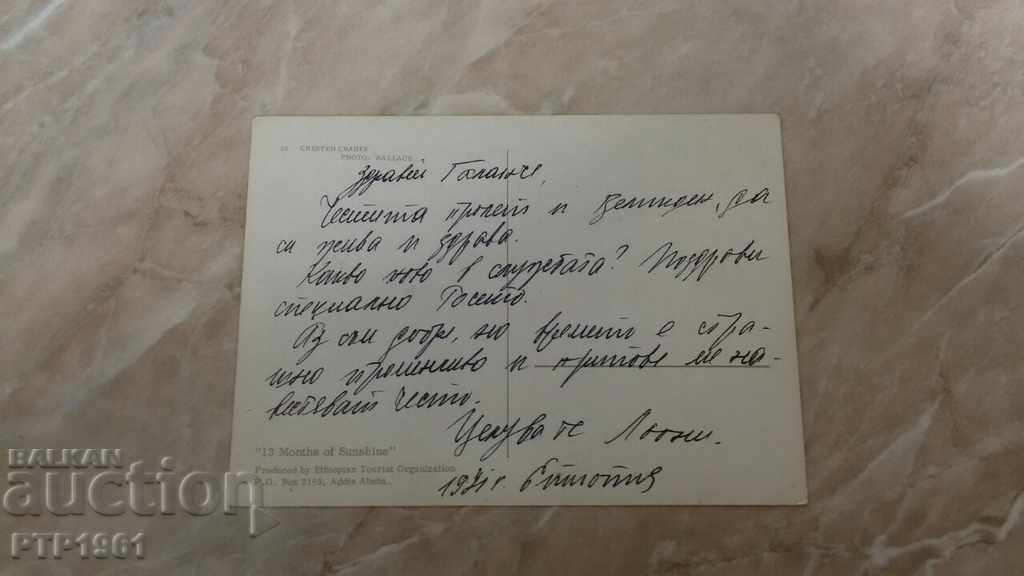 CRESTED CRANES
PHOTO: WALLACE
Здравей Галанче,
Честита пролет и Великден, да
си жива и здрава.
Какво ново в службата? Поздрави
специално Росето.
Аз съм добре, но времето е стра-
шно променливо и ме на-
често.
Целува те
1971г. Етиопия
"13 Months of Sunshine"
Produced by Ethiopian Tourist Organization
P.O. Box 2183, Addis Ababa.
BALKAN
auction
PTP1961